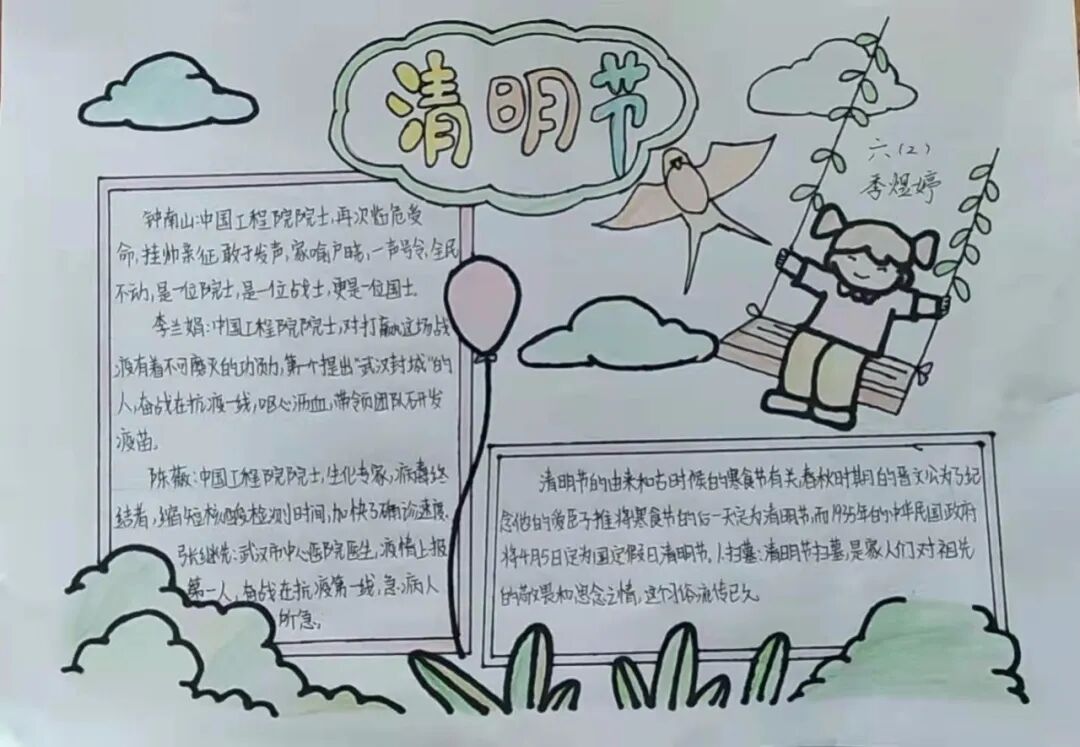 清明节
六(2)
季煜婷
钟南山:中国工程院院士,再次临危受
命,挂帅亲征,敢于发声,家喻户晓,一声号令,全民
不动,是一位院士,是一位战士,更是一位国士。
李兰娟:中国工程院院士,对打赢这场战
疫有着不可磨灭的功勋,第一个提出“武汉封城”的
人,奋战在抗疫一线,呕心沥血,带领团队研发
疫苗。
陈薇:中国工程院院士,生化专家,病毒终
结者,缩短核酸检测时间,加快了确诊速度.
张继先:武汉市中心医院医生,疫情上报
第一人,奋战在抗疫第一线,急病人
所急。
清明节的由来和古时候的寒食节有关,春秋时期的晋文公为了纪
念他的爱臣子推将寒食节的后一天定为清明节,而1935年的中华民国政府
将4月5日定为国定假日清明节。1.扫墓:清明节扫墓,是家人们对祖先
的敬畏和思念之情,这个习俗流传已久